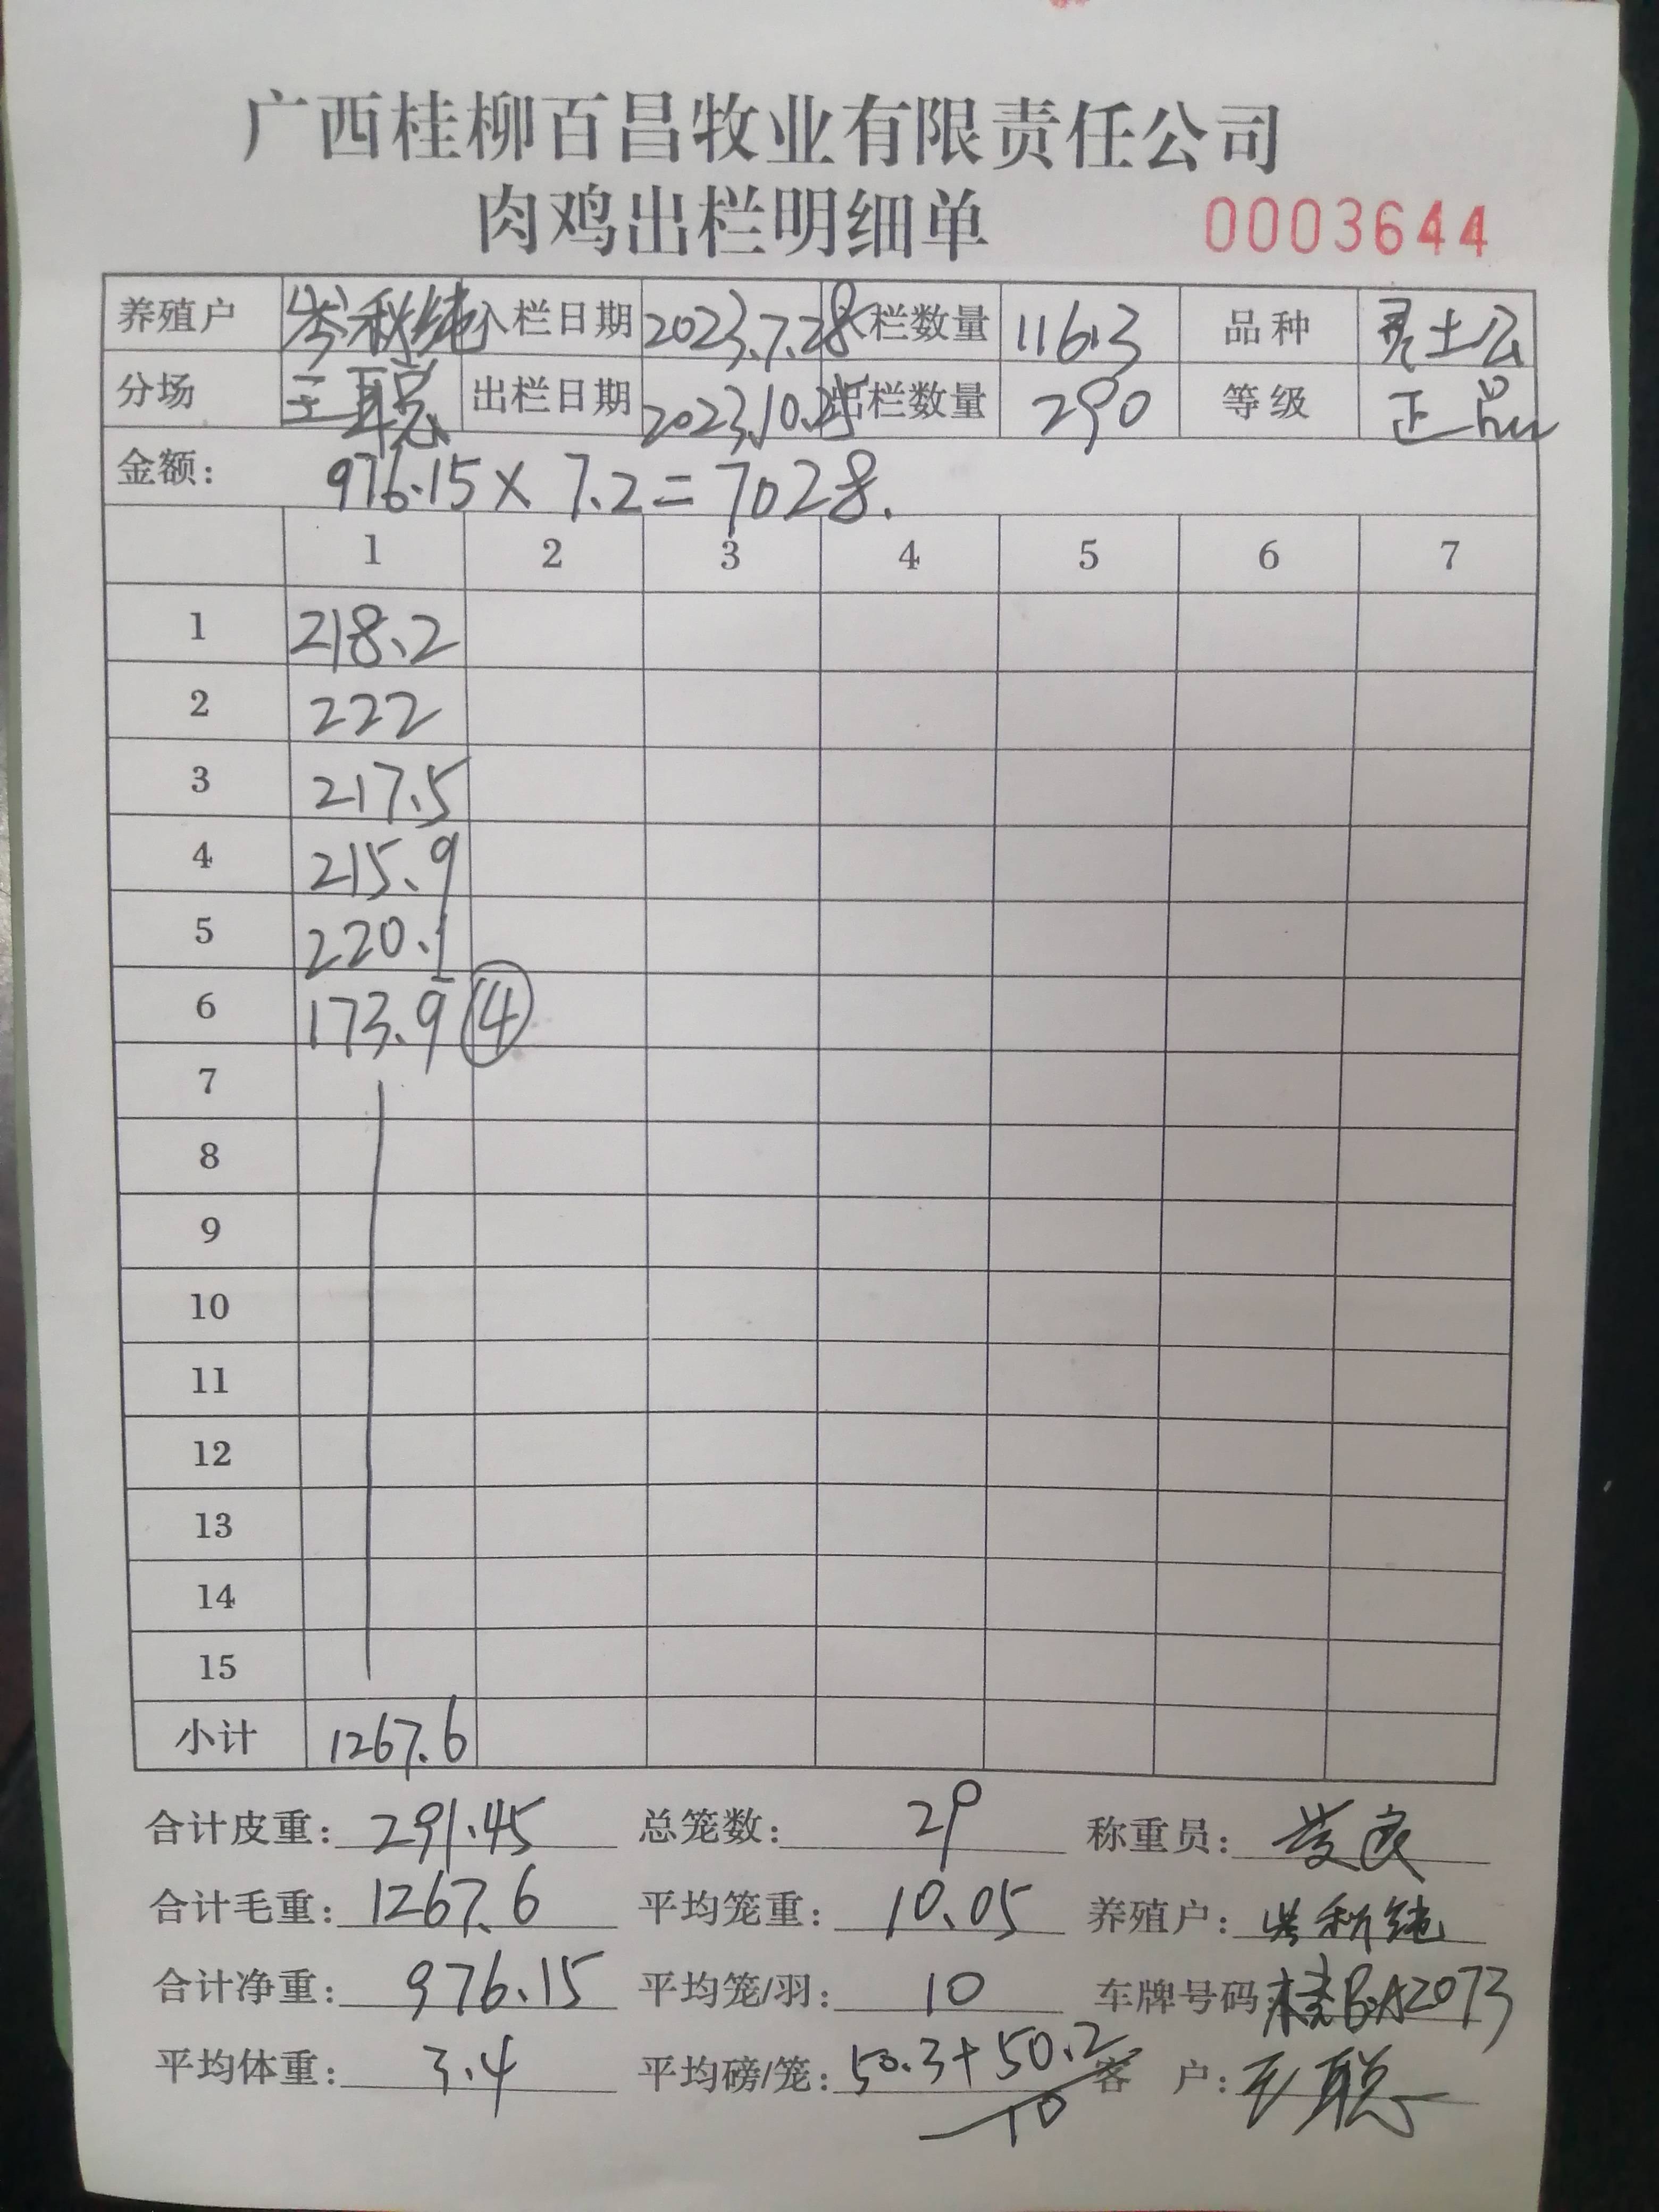 广西桂柳百昌牧业有限责任公司
肉鸡出栏明细单 0003644
养殖户 岑秋纯 入栏日期 2023.7.28 栏数量 11613 品种 灵土公
分场 王聪 出栏日期 2023.10.25 出栏数量 290 等级 正品
金额: 976.15×7.2=7028.
1 2 3 4 5 6 7
1 218.2
2 222
3 217.5
4 215.9
5 220.1
6 173.9 ④
7
8
9
10
11
12
13
14
15
小计 1267.6
合计皮重: 291.45 总笼数: 29 称重员:
合计毛重: 1267.6 平均笼重: 10.05 养殖户: 岑秋纯
合计净重: 976.15 平均笼/羽: 10 车牌号码 桂BA2073
平均体重: 3.4 平均磅/笼: 50.3+50.2 客 户: 王聪
10